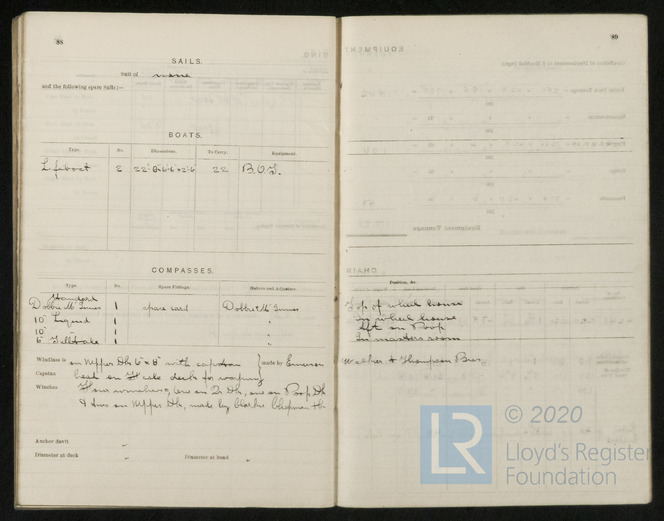 88
SAILS.
Suit of none
and the following spare Sails:—
BOATS.
Type. No. Dimensions. To Carry. Equipment.
Lifeboat 2 22 B.O.T.
COMPASSES.
Type. No. Spare Fittings. Makers and Adjusters.
Standard
Dobbie McInnes 1 spare card Dobbie McInnes
10" Liquid 1 "
10" " 1 "
6" Telltale 1 "
Windlass is on Upper Dk 6" x 8" with capstan made by Emerson
Capstan head on
Winches Four winches, one on Dk, one on Poop Dk
& two on Upper Dk, made by Clarke Chapman
Anchor davit -
Diameter at deck - Diameter at head -
89
Position, &c.
Top of wheel house
in wheel house
Aft on Poop
In masters room
Walker & Thompson Bros
© 2020
LR
Lloyd's Register
Foundation